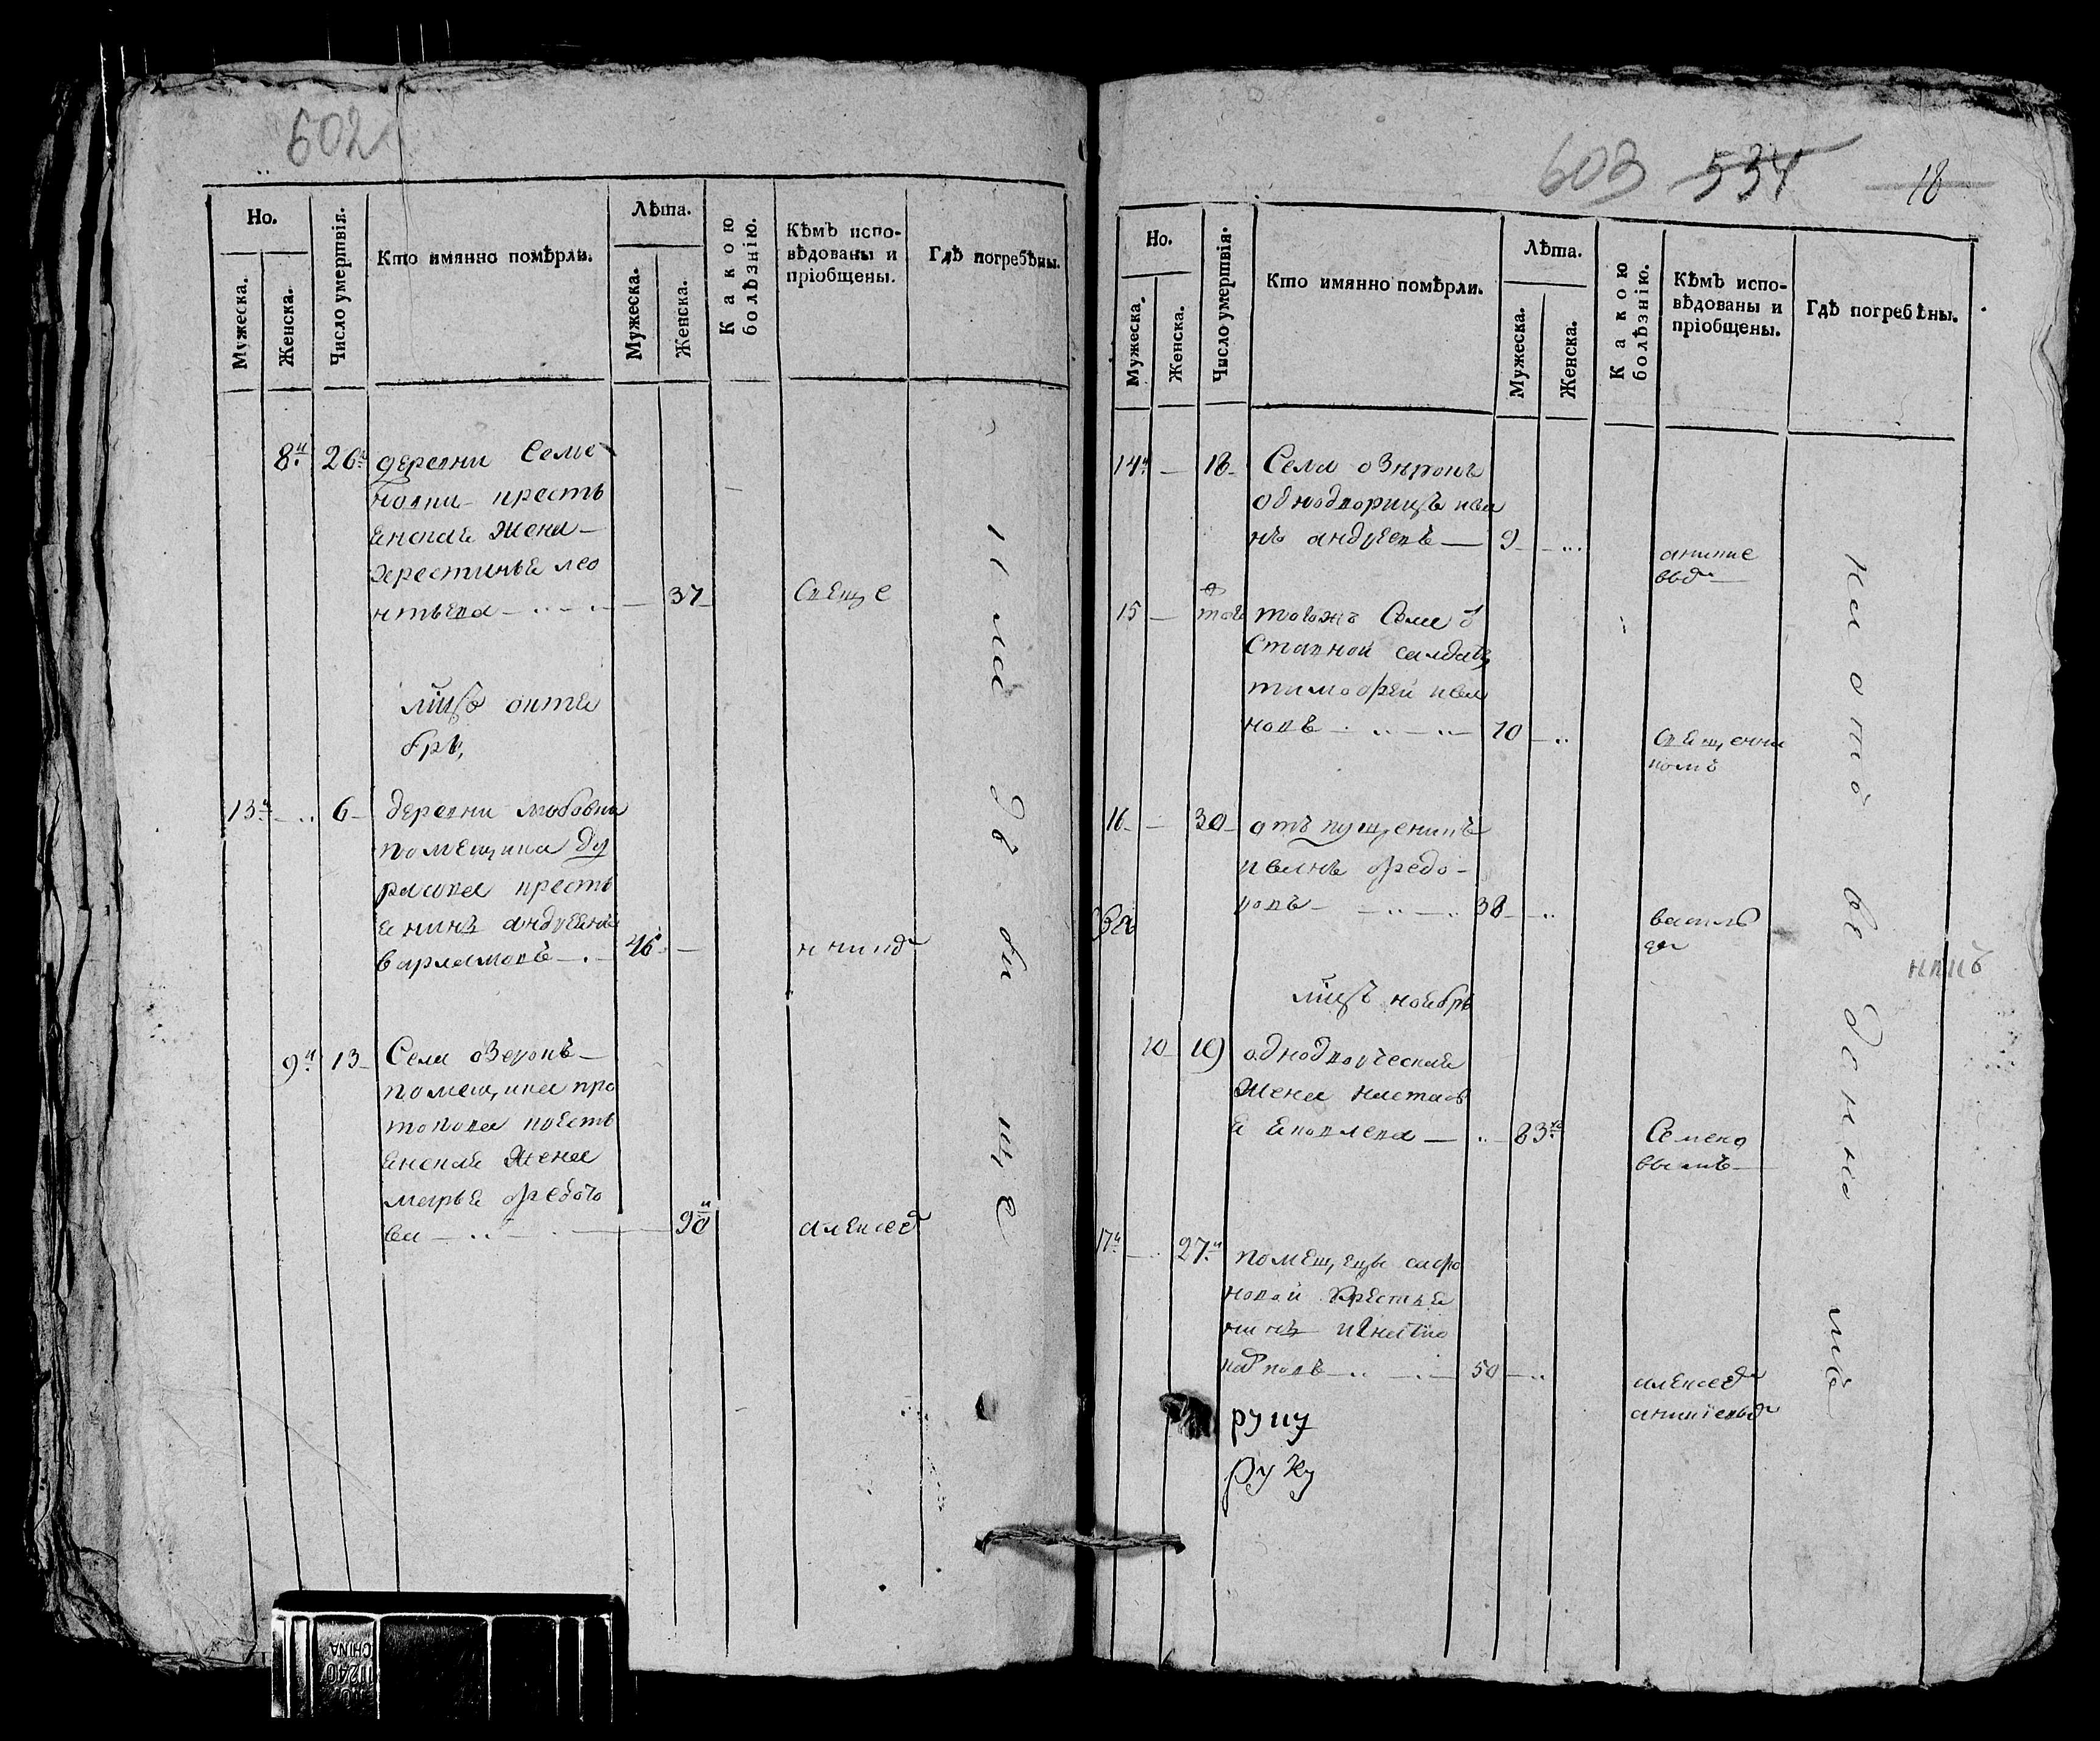 602
Но.
Мужеска.
Женска.
Число умертвія.
Кто имянно помѣрли.
Лѣта.
Мужеска.
Женска.
Какою болѣзнію.
Кѣмъ испо-
вѣдованы и
пріобщены.
Гдѣ погребѣны.
8й 26 деревни Семе
новки кресть
янская жена
христинья лео
нтьева 37 Свяще
мцъ октя
брь
13й 6 деревни любовки
помещика Ду
расова кресть
янинъ андреянъ
варламовъ 46
9й 13 Села озерокъ
помещика про
топопа кресть
янская жена
марья федото
ва 90 алексее
На кла дби ще
603 534 18
Но.
Мужеска.
Женска.
Число умертвія.
Кто имянно помѣрли.
Лѣта.
Мужеска.
Женска.
Какою болѣзнію.
Кѣмъ испо-
вѣдованы и
пріобщены.
Гдѣ погребѣны.
14й 18 Села озерокъ
однодворицъ ива
нъ андреевъ 9
15 тогожъ Села о
Ставной салдатъ
тимофей ива
новъ 70 Священни
комъ
16 30 отъ пущеникъ
иванъ федо
ровъ 38 василь
мцъ ноябрь
10 19 однодворческая
жена настась
я яковлева 83 Семено
вымъ
17й 27й помещецы сафо
новой крестья
нинъ игнатіо
карповъ 50 алексее
руку
руку
на отве дѣнно мѣ